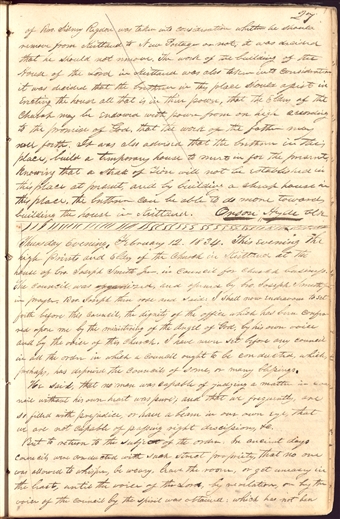 27
of Bro Sidney Rigdon was taken into consideration whether he should
remove from Kirtland to New Portage or not, it was decided
that he should not remove. The word of the building of the
House of the Lord in Kirtland was also taken into consideration
it was decided that the brethren in this place should assist in
erecting the house all that is in their power, that the Elders of the
Church may be endowed with power from on high according
to the promise of God, that the word of the father may
roll forth, It was also advised that the brethren in this
place, built a temporary house to meet in for the present
knowing that a stake of Zion will not be established in
this place at present, and by building a cheap house in
this place, the brethren can be able to do more towards
building the house in Kirtland. Orson Hyde Clk
Thursday Evening, February 12. 1834. This evening the
high Priests and Elders of the Church in Kirtland at the
house of bro Joseph Smith Jun. in Council for Church business.
The council was organized, and opened by bro Joseph Smith Jr
in prayer. Bro. Joseph then rose and said: I shall now endeavour to set
forth before this council, the dignity of the office which has been confer
red upon me by the ministering of the Angel of God, by his own voice
and by the voice of this Church. I have never set before any council
in all the order in which a Council ought to be conducted, which,
perhaps, has deprived the Councils of some, or many blessings.
He said, that no man was capable of judging a matter in coun
cil without his own heart was pure; and that we frequently, are
so filled with prejudice, or have a beam in our own eye, that
we are not capable of passing right decissions, &c.
But to return to the subject of the order. In ancient days
Councils were conducted with such strict propriety, that no one
was allowed to whisper, be weary, leave the room, or get uneasy in
the least, until the voice of the Lord, by revelation, or by the
voice of the council by the spirit was obtained: which has not been